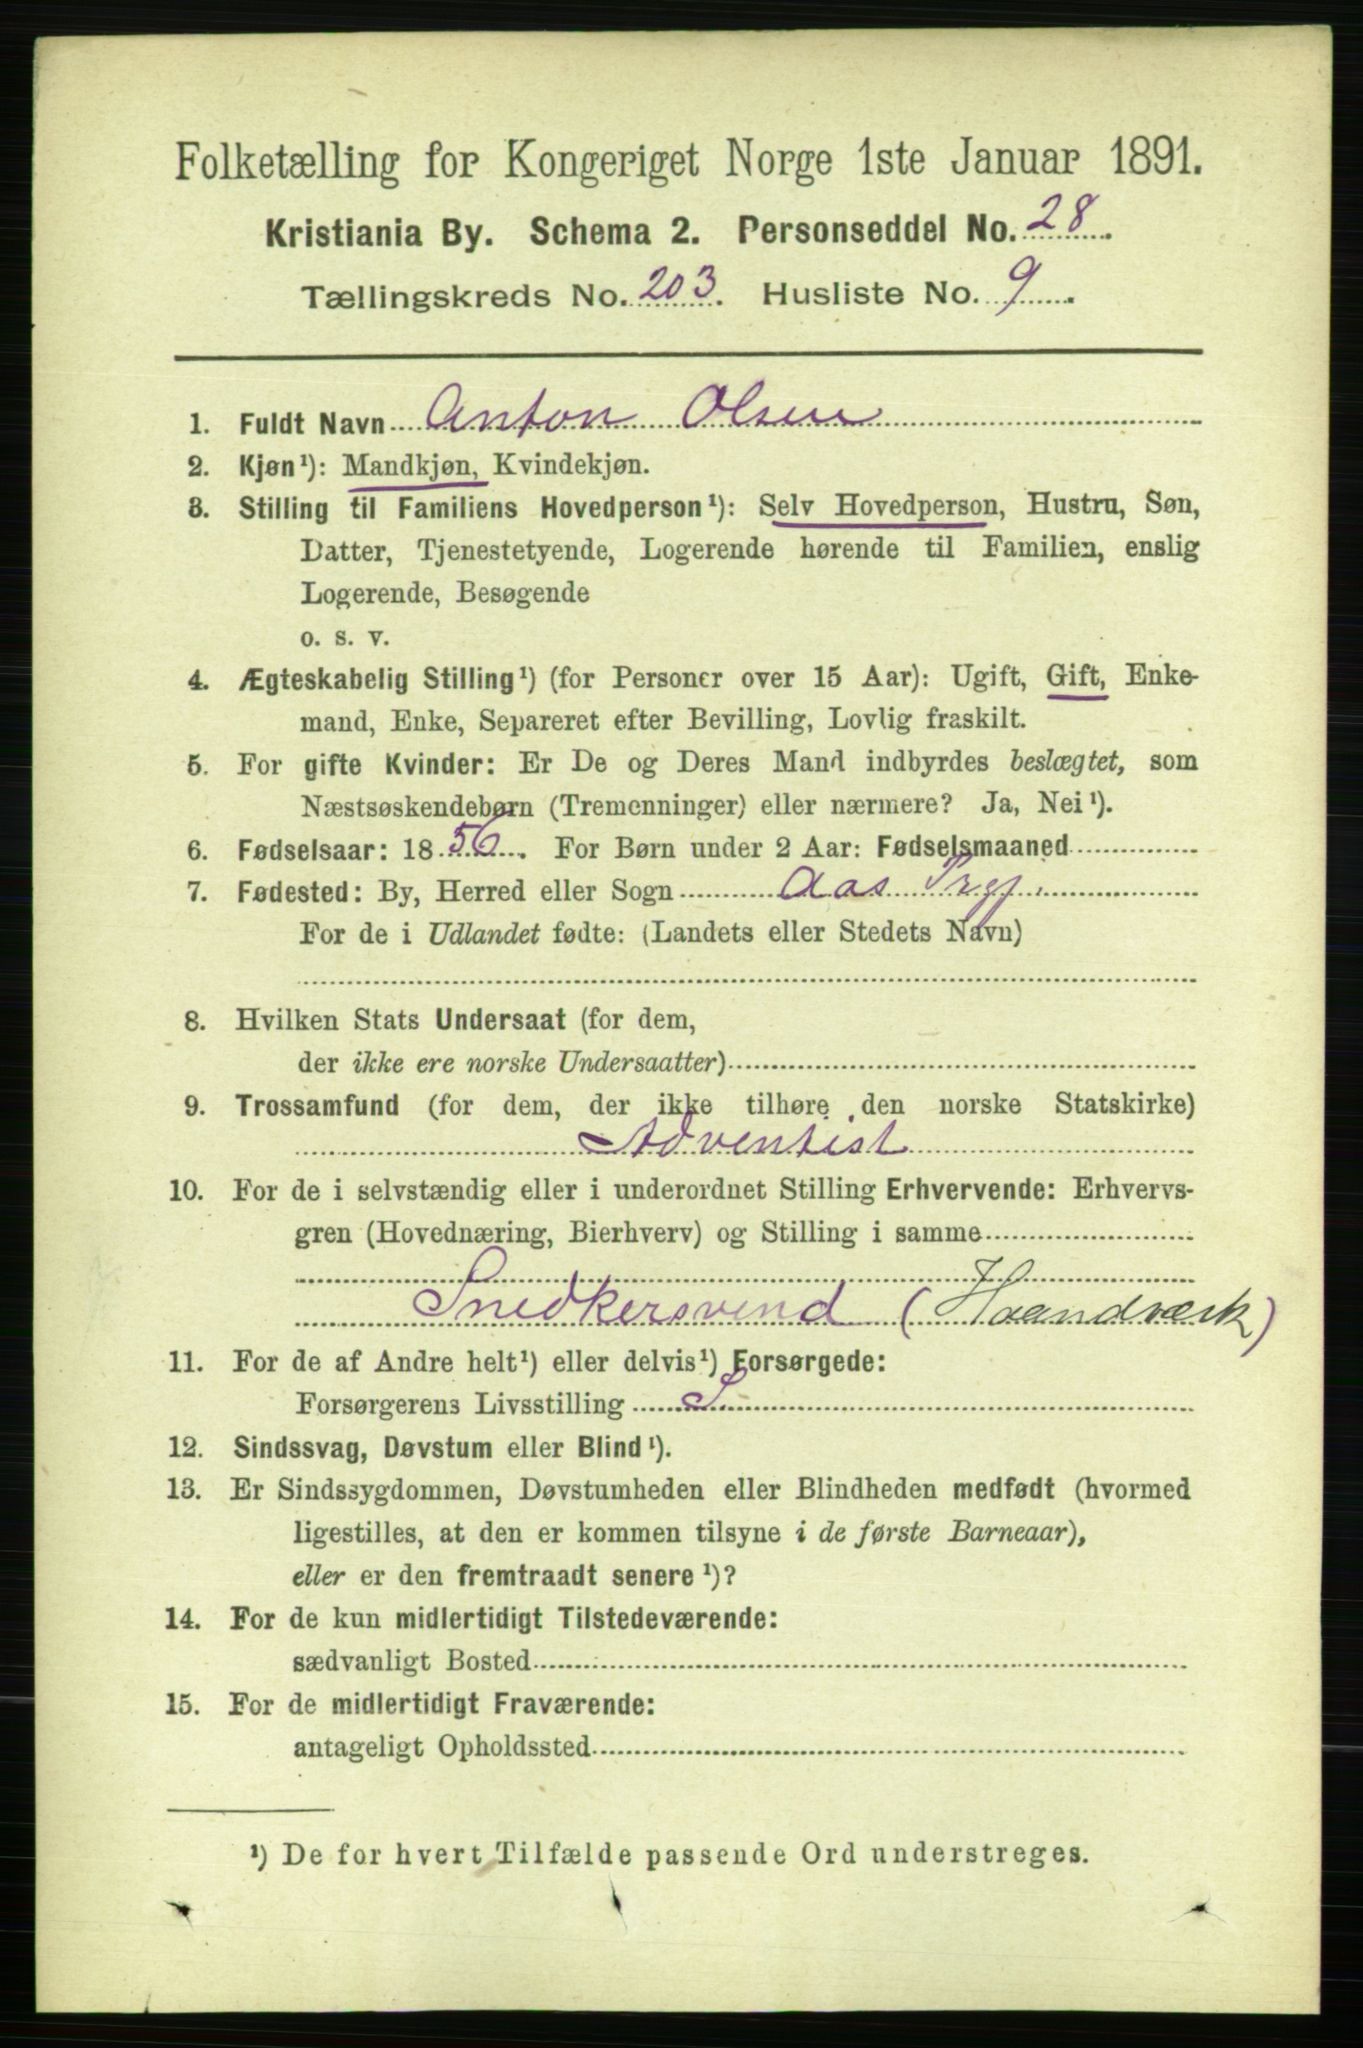 Folketælling for Kongeriget Norge 1ste Januar 1891.
Kristiania By. Schema 2. Personseddel No. 28.
Tællingskreds No. 203. Husliste No. 9.
1. Fuldt Navn Anton Olsen
2. Kjøn¹): Mandkjøn, Kvindekjøn.
3. Stilling til Familiens Hovedperson¹): Selv Hovedperson, Hustru, Søn,
Datter, Tjenestetyende, Logerende hørende til Familien, enslig
Logerende, Besøgende
o. s. v.
4. Ægteskabelig Stilling¹) (for Personer over 15 Aar): Ugift, Gift, Enke-
mand, Enke, Separeret efter Bevilling, Lovlig fraskilt.
5. For gifte Kvinder: Er De og Deres Mand indbyrdes beslægtet, som
Næstsøskendebørn (Tremenninger) eller nærmere? Ja, Nei¹).
6. Fødselsaar: 1856. For Børn under 2 Aar: Fødselsmaaned
7. Fødested: By, Herred eller Sogn Aas Prgj.
For de i Udlandet fødte: (Landets eller Stedets Navn)
8. Hvilken Stats Undersaat (for dem,
der ikke ere norske Undersaatter)
9. Trossamfund (for dem, der ikke tilhøre den norske Statskirke)
Adventist
10. For de i selvstændig eller i underordnet Stilling Erhvervende: Erhvervs-
gren (Hovednæring, Bierhverv) og Stilling i samme
Snedkersvend (Haandværk)
11. For de af Andre helt¹) eller delvis¹) Forsørgede:
Forsørgerens Livsstilling S
12. Sindssvag, Døvstum eller Blind¹).
13. Er Sindssygdommen, Døvstumheden eller Blindheden medfødt (hvormed
ligestilles, at den er kommen tilsyne i de første Barneaar),
eller er den fremtraadt senere¹)?
14. For de kun midlertidigt Tilstedeværende:
sædvanligt Bosted
15. For de midlertidigt Fraværende:
antageligt Opholdssted
¹) De for hvert Tilfælde passende Ord understreges.